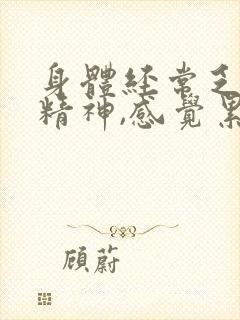 身體經常乏
精神,感覺累
顾蔚